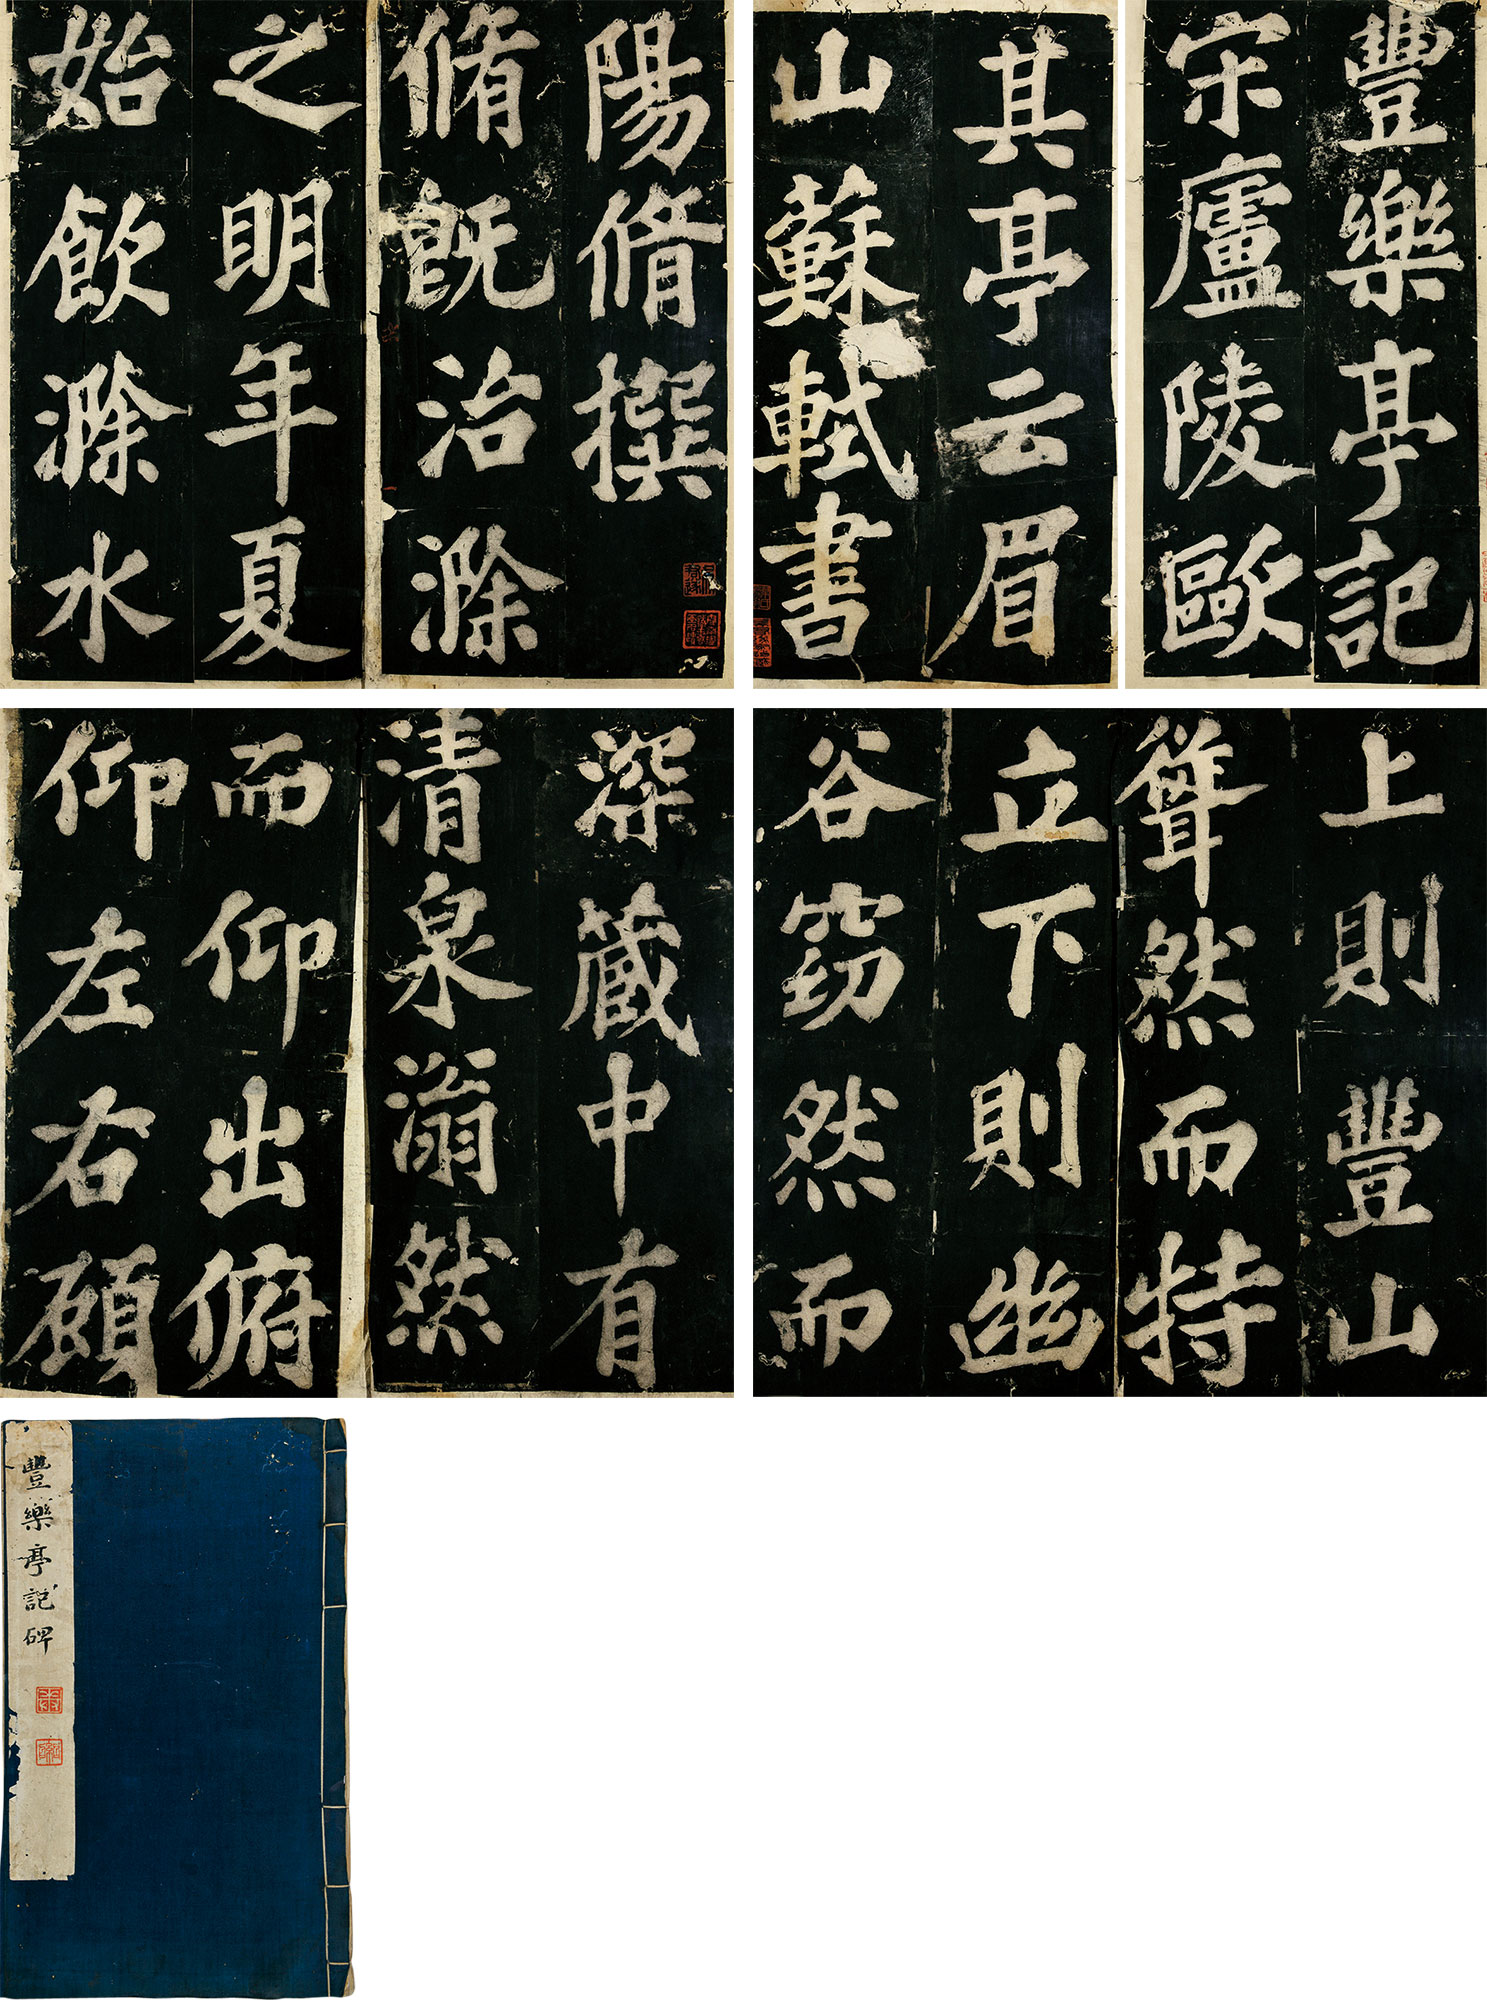 豐樂亭記
宋廬陵歐
其亭云眉
山蘇軾書
陽脩撰
脩既治滁
之明年夏
始飲滁水
上則豐山
聳然而特
立下則幽
谷窈然而
深藏中有
清泉滃然
而仰出俯
仰左右顧
豐樂亭記碑